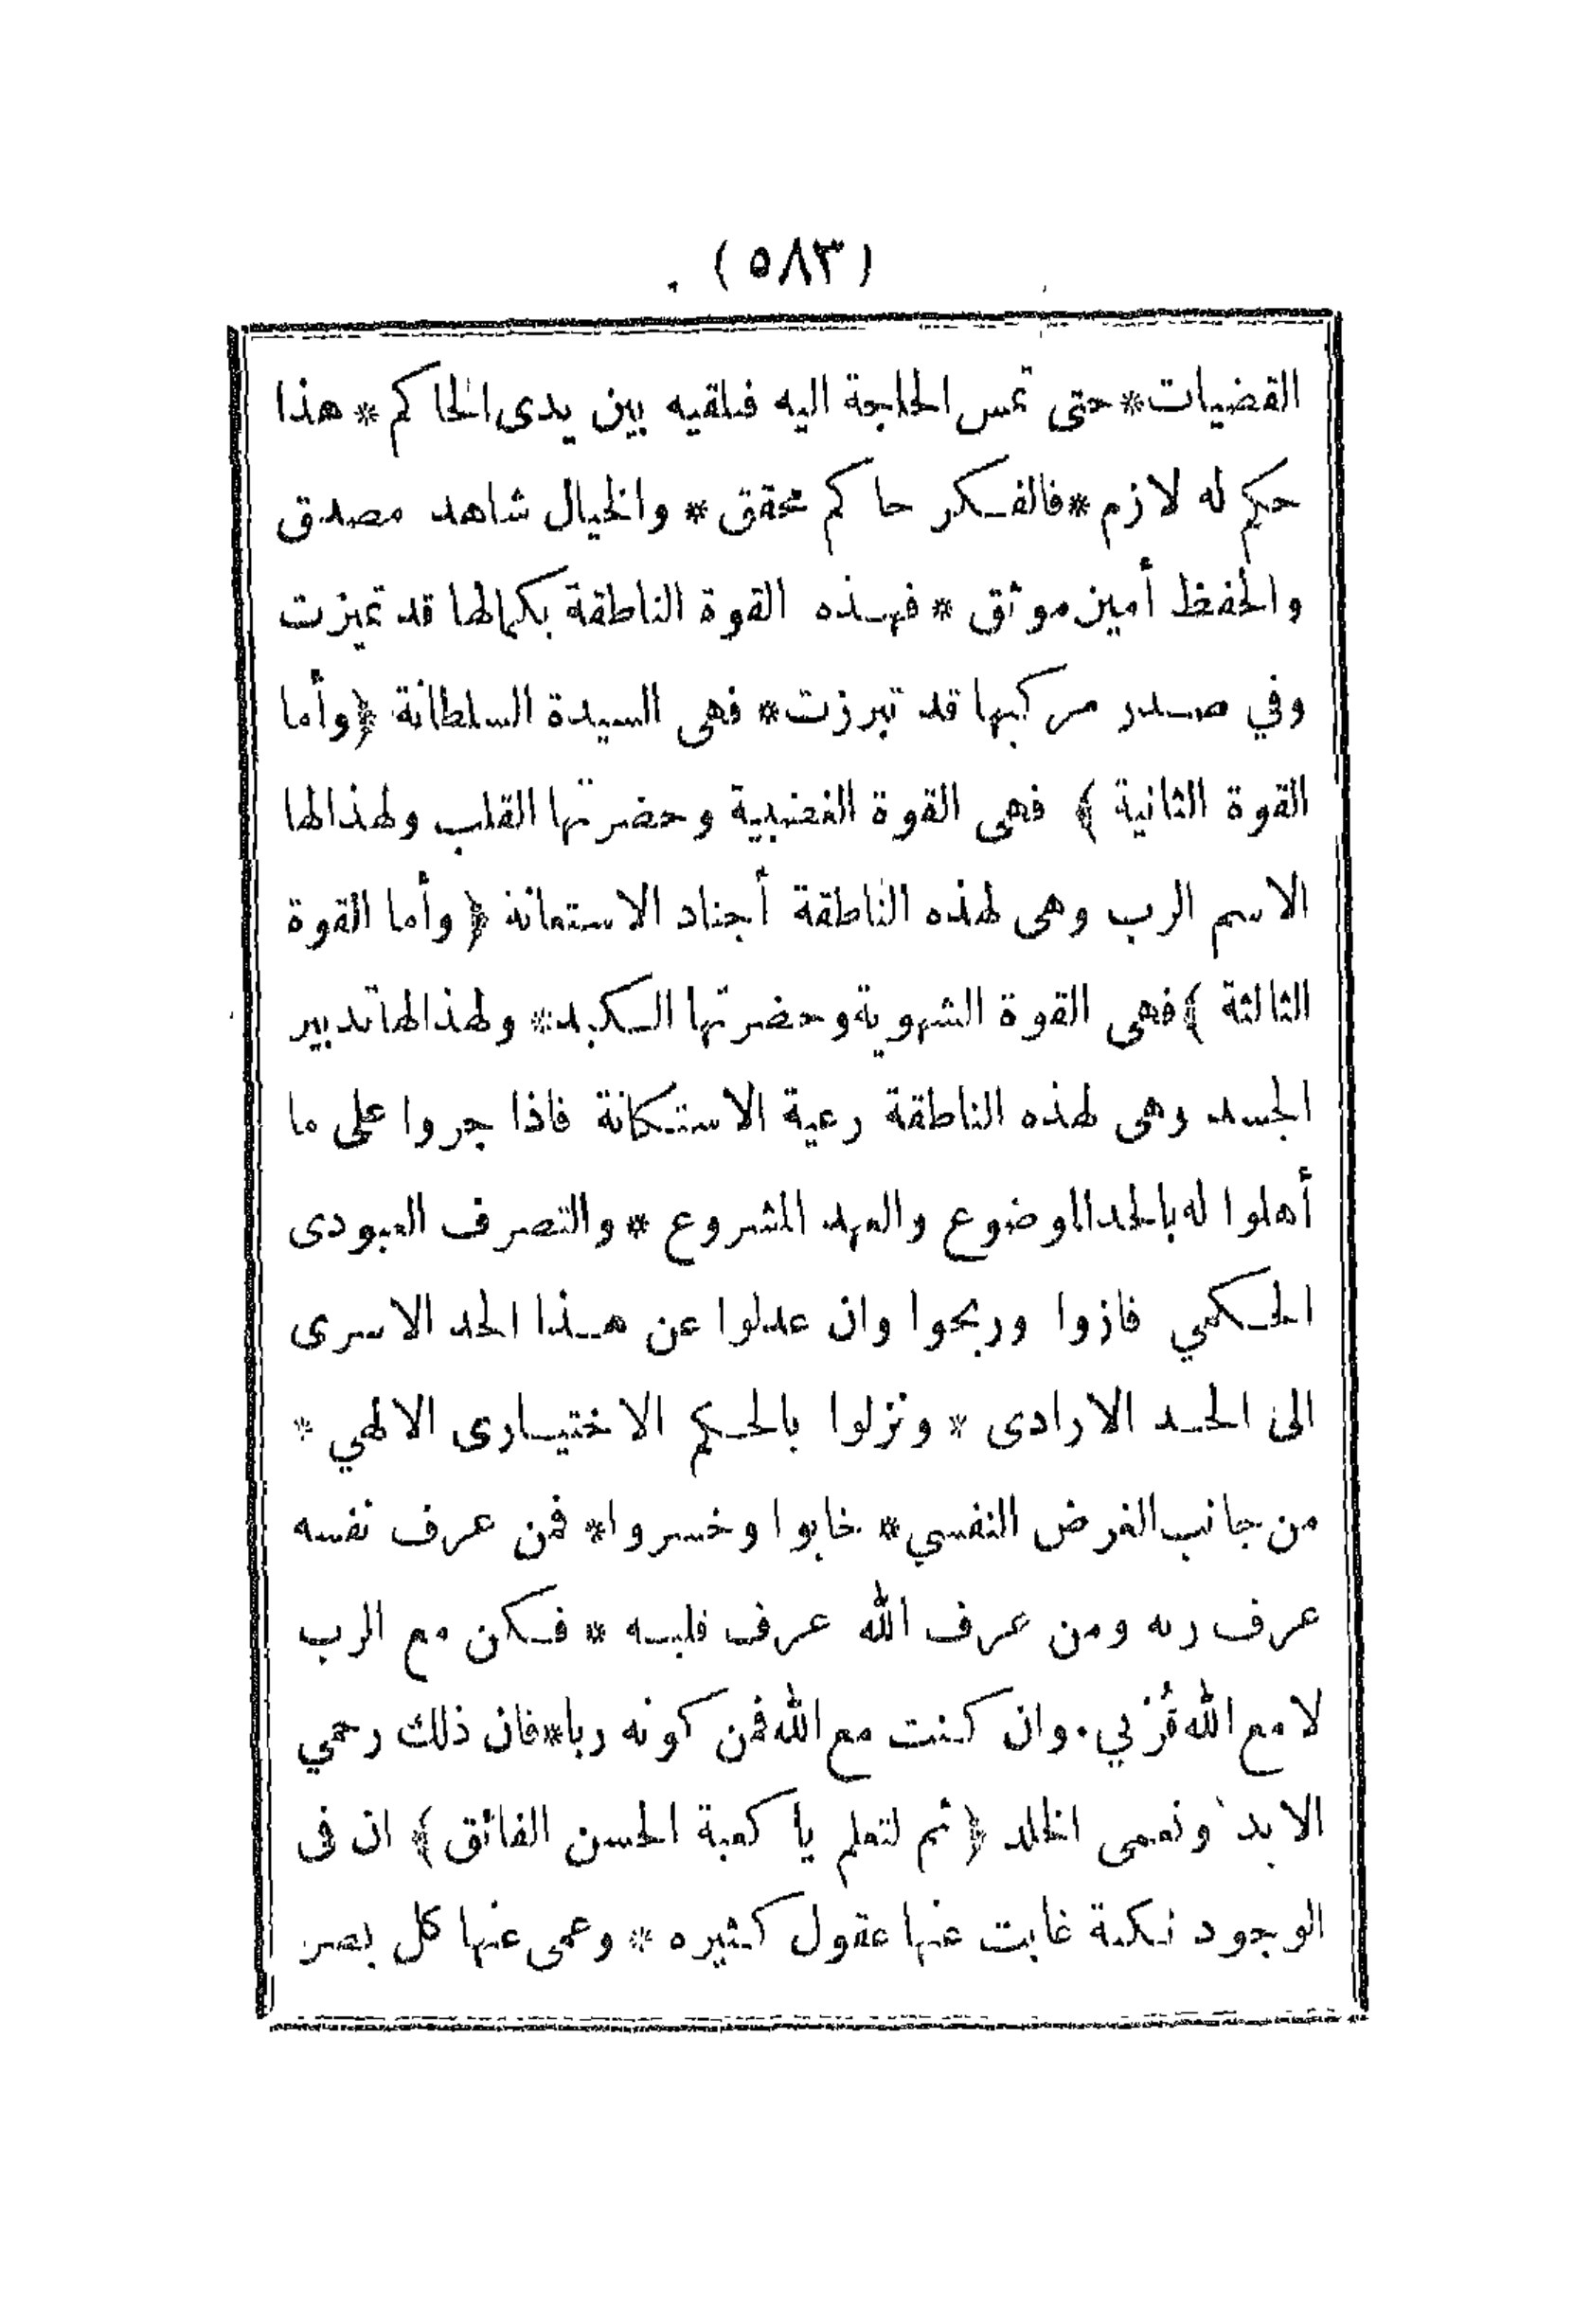 (٥٨٣)
القضيات * حتى تمس الحاجة اليه فيلقيه بين يدى الحاكم * هذا
حكم له لازم * فالفكر حاكم محقق * والخيال شاهد مصدق
والحفظ أمين موثق * فهذه القوة الناطقة بكمالها قد تميزت
وفي صدر مركبها قد تبرزت * فهى السيدة السلطانة ﴿ وأما
القوة الثانية ﴾ فهى القوة الغضبية وحضرتها القلب ولهذا لها
الاسم الرب وهى لهذه الناطقة أجناد الاستعانة ﴿ وأما القوة
الثالثة ﴾ فهى القوة الشهوية وحضرتها الكبد * ولهذا لها تدبير
الجسد وهى لهذه الناطقة رعية الاستكانة فاذا جروا على ما
أهلوا له بالحد الموضوع والعهد المشروع * والتصرف العبودى
الحكمي فازوا وربحوا وان عدلوا عن هذا الحد الاسرى
الى الحد الارادى * ونزلوا بالحكم الاختيارى الالهي *
من جانب الغرض النفسي * خابوا وخسروا * فمن عرف نفسه
عرف ربه ومن عرف الله عرف قلبه * فكن مع الرب
لا مع الله قُزبي . وان كنت مع الله فمن كونه ربا * فان ذلك رحمي
الابد ونعمى الخلد ﴿ ثم لتعلم يا كعبة الحسن الفائق ﴾ ان فى
الوجود نكتة غابت عنها عقول كثيره * وعمى عنها كل بصر